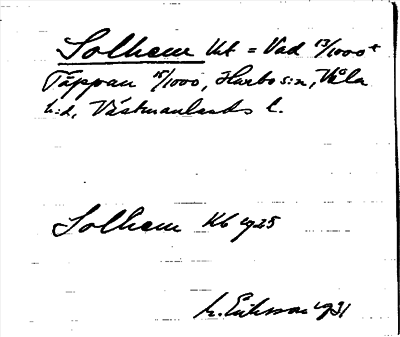 Solhem Kt = Vad 13/1000 +
Täppan 15/1000, Harbo s:n, Våla
h:d, Västmanlands l.
Solhem Kb 1925
M. Eriksson 1931